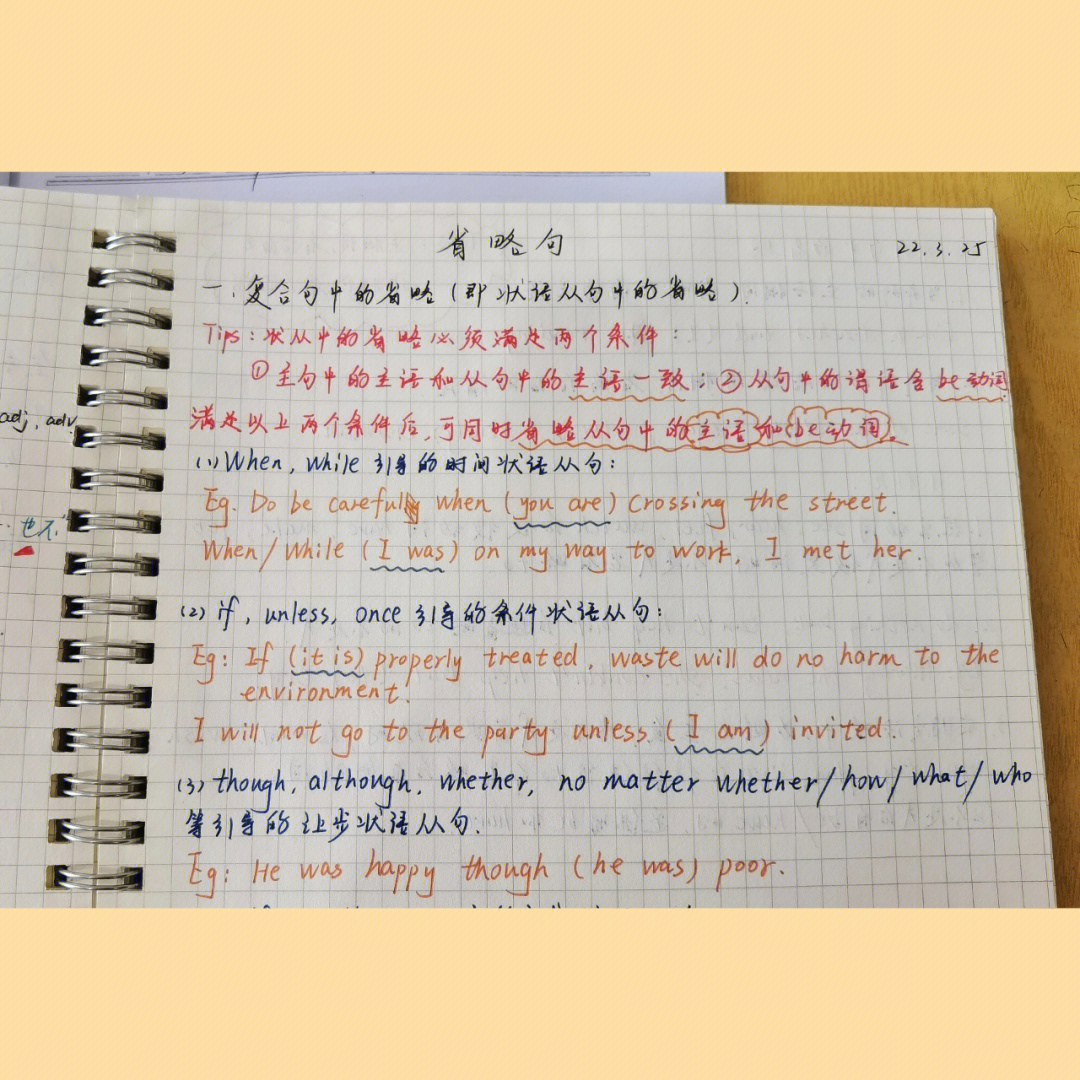 省略句
22.3.25
一、复合句中的省略(即状语从句中的省略).
Tips:状从中的省略必须满足两个条件:
①主句中的主语和从句中的主语一致;②从句中的谓语含be动词
满足以上两个条件后,可同时省略从句中的主语和be动词。
(1)When, while 引导的时间状语从句:
Eg. Do be careful when (you are) crossing the street.
When/While (I was) on my way to work, I met her.
(2) if, unless, once 引导的条件状语从句:
Eg: If (it is) properly treated, waste will do no harm to the
environment.
I will not go to the party unless (I am) invited.
(3) though, although, whether, no matter whether/how/what/who
等引导的让步状语从句.
Eg: He was happy though (he was) poor.
adj, adv
也不